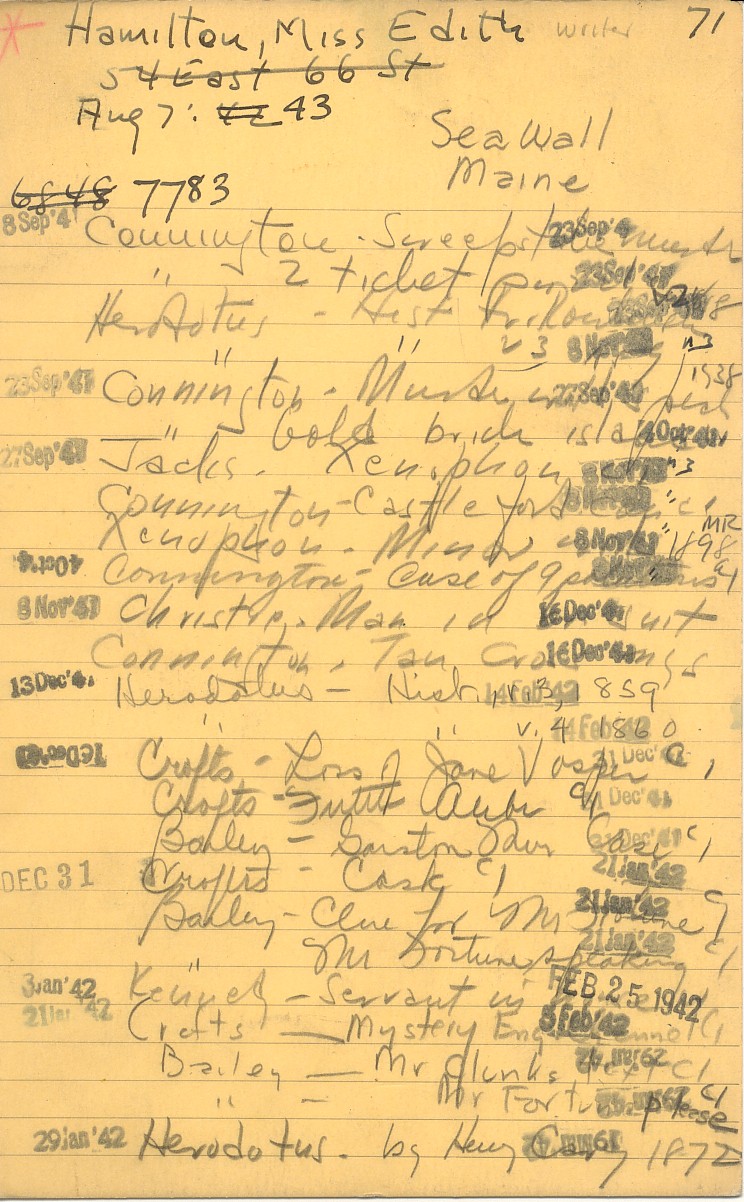 Hamilton, Miss Edith writer 71
54 East 66 St
Aug 7: 42 43
Sea Wall
Maine
6848 7783
8 Sep '41 Connington - Sweepstake 23 Sep '4
" 2 ticket 23 Sep '41
Herodotus - Hist v2
" " v 3 8 Nov n3
23 Sep '41 Connington - 27 Sep 1938
" Gold brick isla 4 Oct '41
27 Sep '41 Jacks. Xenophon 8 Nov n3
Connington - Castleford 8 Nov c1
Xenophon - Minor 8 Nov '41 1898 MR
4 Oct '4 Connington - Case of 9 c1
8 Nov '41 Christie - Man in 16 Dec '41 suit
Connington, Tau Cro 16 Dec '4 ngs
13 Dec '4 Herodotus - Hist, v. 3, 1859 14 Feb '42
" " v. 4 1860 14 Feb '42
16 Dec '41 Crofts - Loss of Jane Vosper c1 31 Dec '41
Crofts - c1 31 Dec '41
Bailey - Garston Mur Case c1 31 Dec '41
DEC 31 Crofts - Cask c1 21 Jan '42
Bailey - Clue for Mr Fortune c1 21 Jan '42
" Mr Fortune speaking c1 21 Jan '42
3 Jan '42 Kennedy - Servant in FEB 25 1942
21 Jan '42 Crofts - Mystery Eng Channel c1 3 Feb '42
Bailey - Mr Clunk's text c1
" - Mr Fortune please c1
29 Jan '42 Herodotus. by Henry Cary 1872